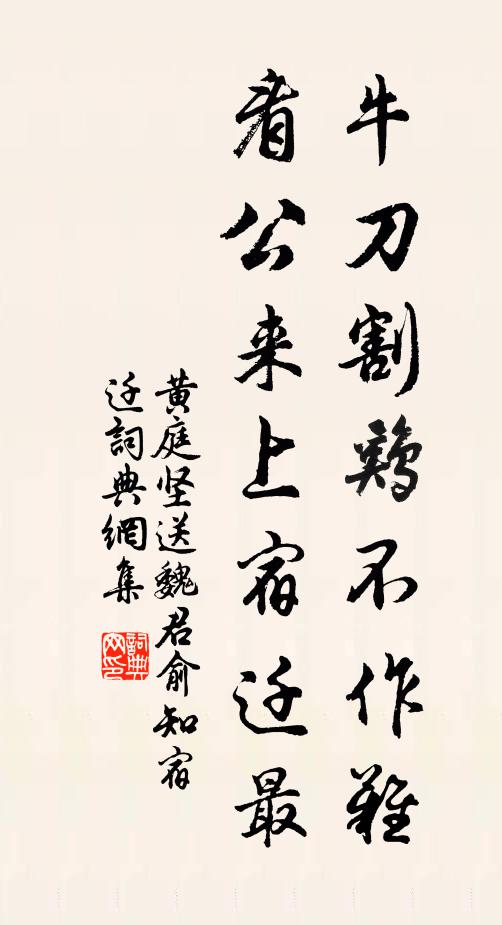 牛刀割鷄不作難
看公来上宿迁最
黄庭坚送魏君俞知宿
迁詞典網集
詞典
网印